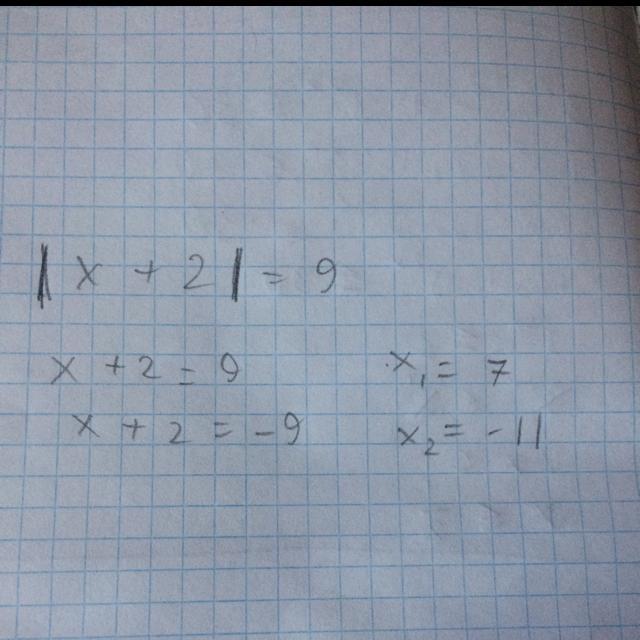 |x + 2| = 9
x + 2 = 9 x₁ = 7
x + 2 = -9 x₂ = -11